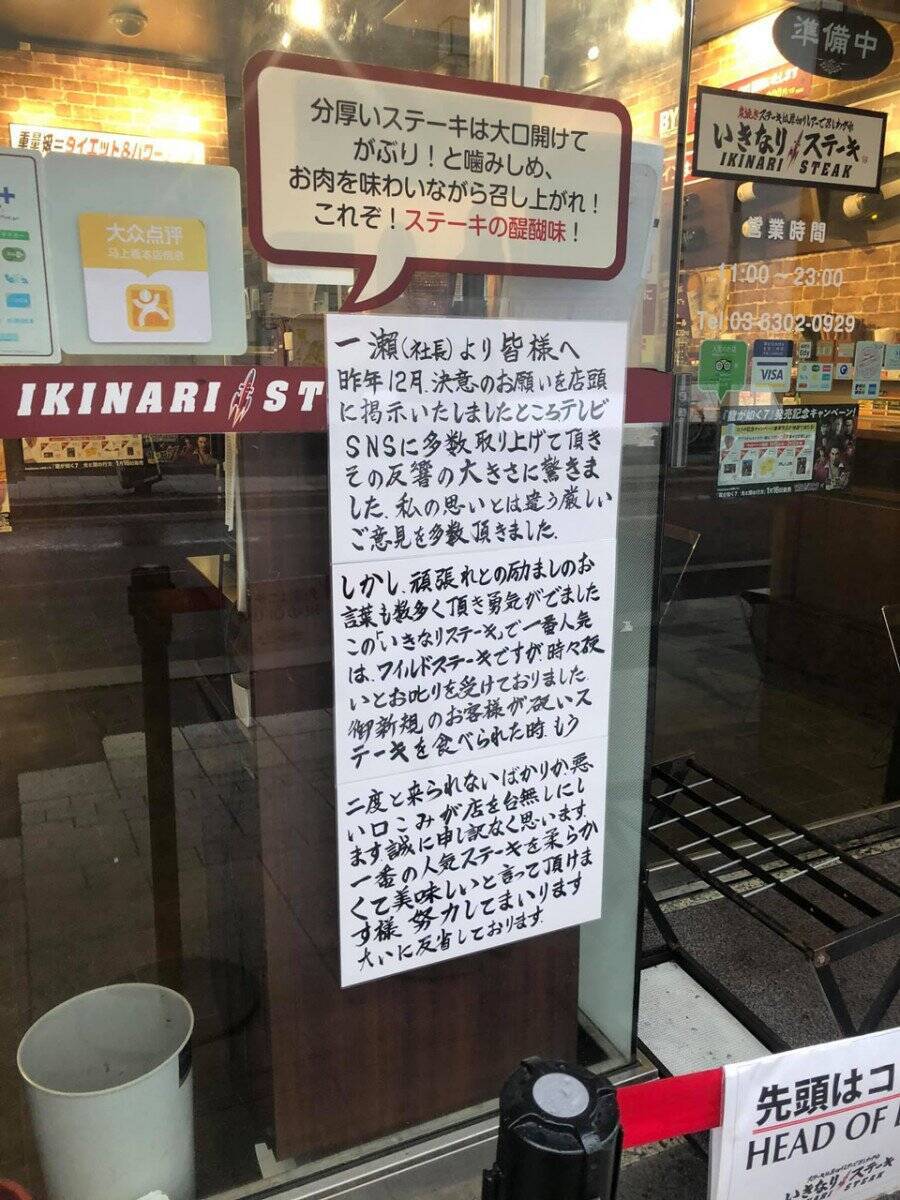 準備中
分厚いステーキは大口開けて
がぶり！と噛みしめ、
お肉を味わいながら召し上がれ！
これぞ！ステーキの醍醐味！
いきなりステーキ
IKINARI STEAK
営業時間
11:00～23:00
Tel 03-6302-0929
大众点评
VISA
『龍が如く7』発売記念キャンペーン!
IKINARI ST
一瀬(社長)より皆様へ
昨年12月、決意のお願いを店頭
に掲示いたしましたところテレビ
SNSに多数取り上げて頂き
その反響の大きさに驚きま
した。私の思いとは違う厳しい
ご意見を多数頂きました。
しかし、頑張れとの励ましのお
言葉も数多く頂き勇気がでました
この「いきなりステーキ」で一番人気
は、ワイルドステーキですが、時々硬
いとお叱りを受けておりました。
御新規のお客様が硬いス
テーキを食べられた時、もう
二度と来られないばかりか悪
い口こみが店を台無しにし
ます誠に申し訳なく思います。
一番の人気ステーキを柔らか
くて美味しいと言って頂けま
す様、努力してまいります
大いに反省しております。
先頭はコ
HEAD OF
いきなりステーキ
STEAK